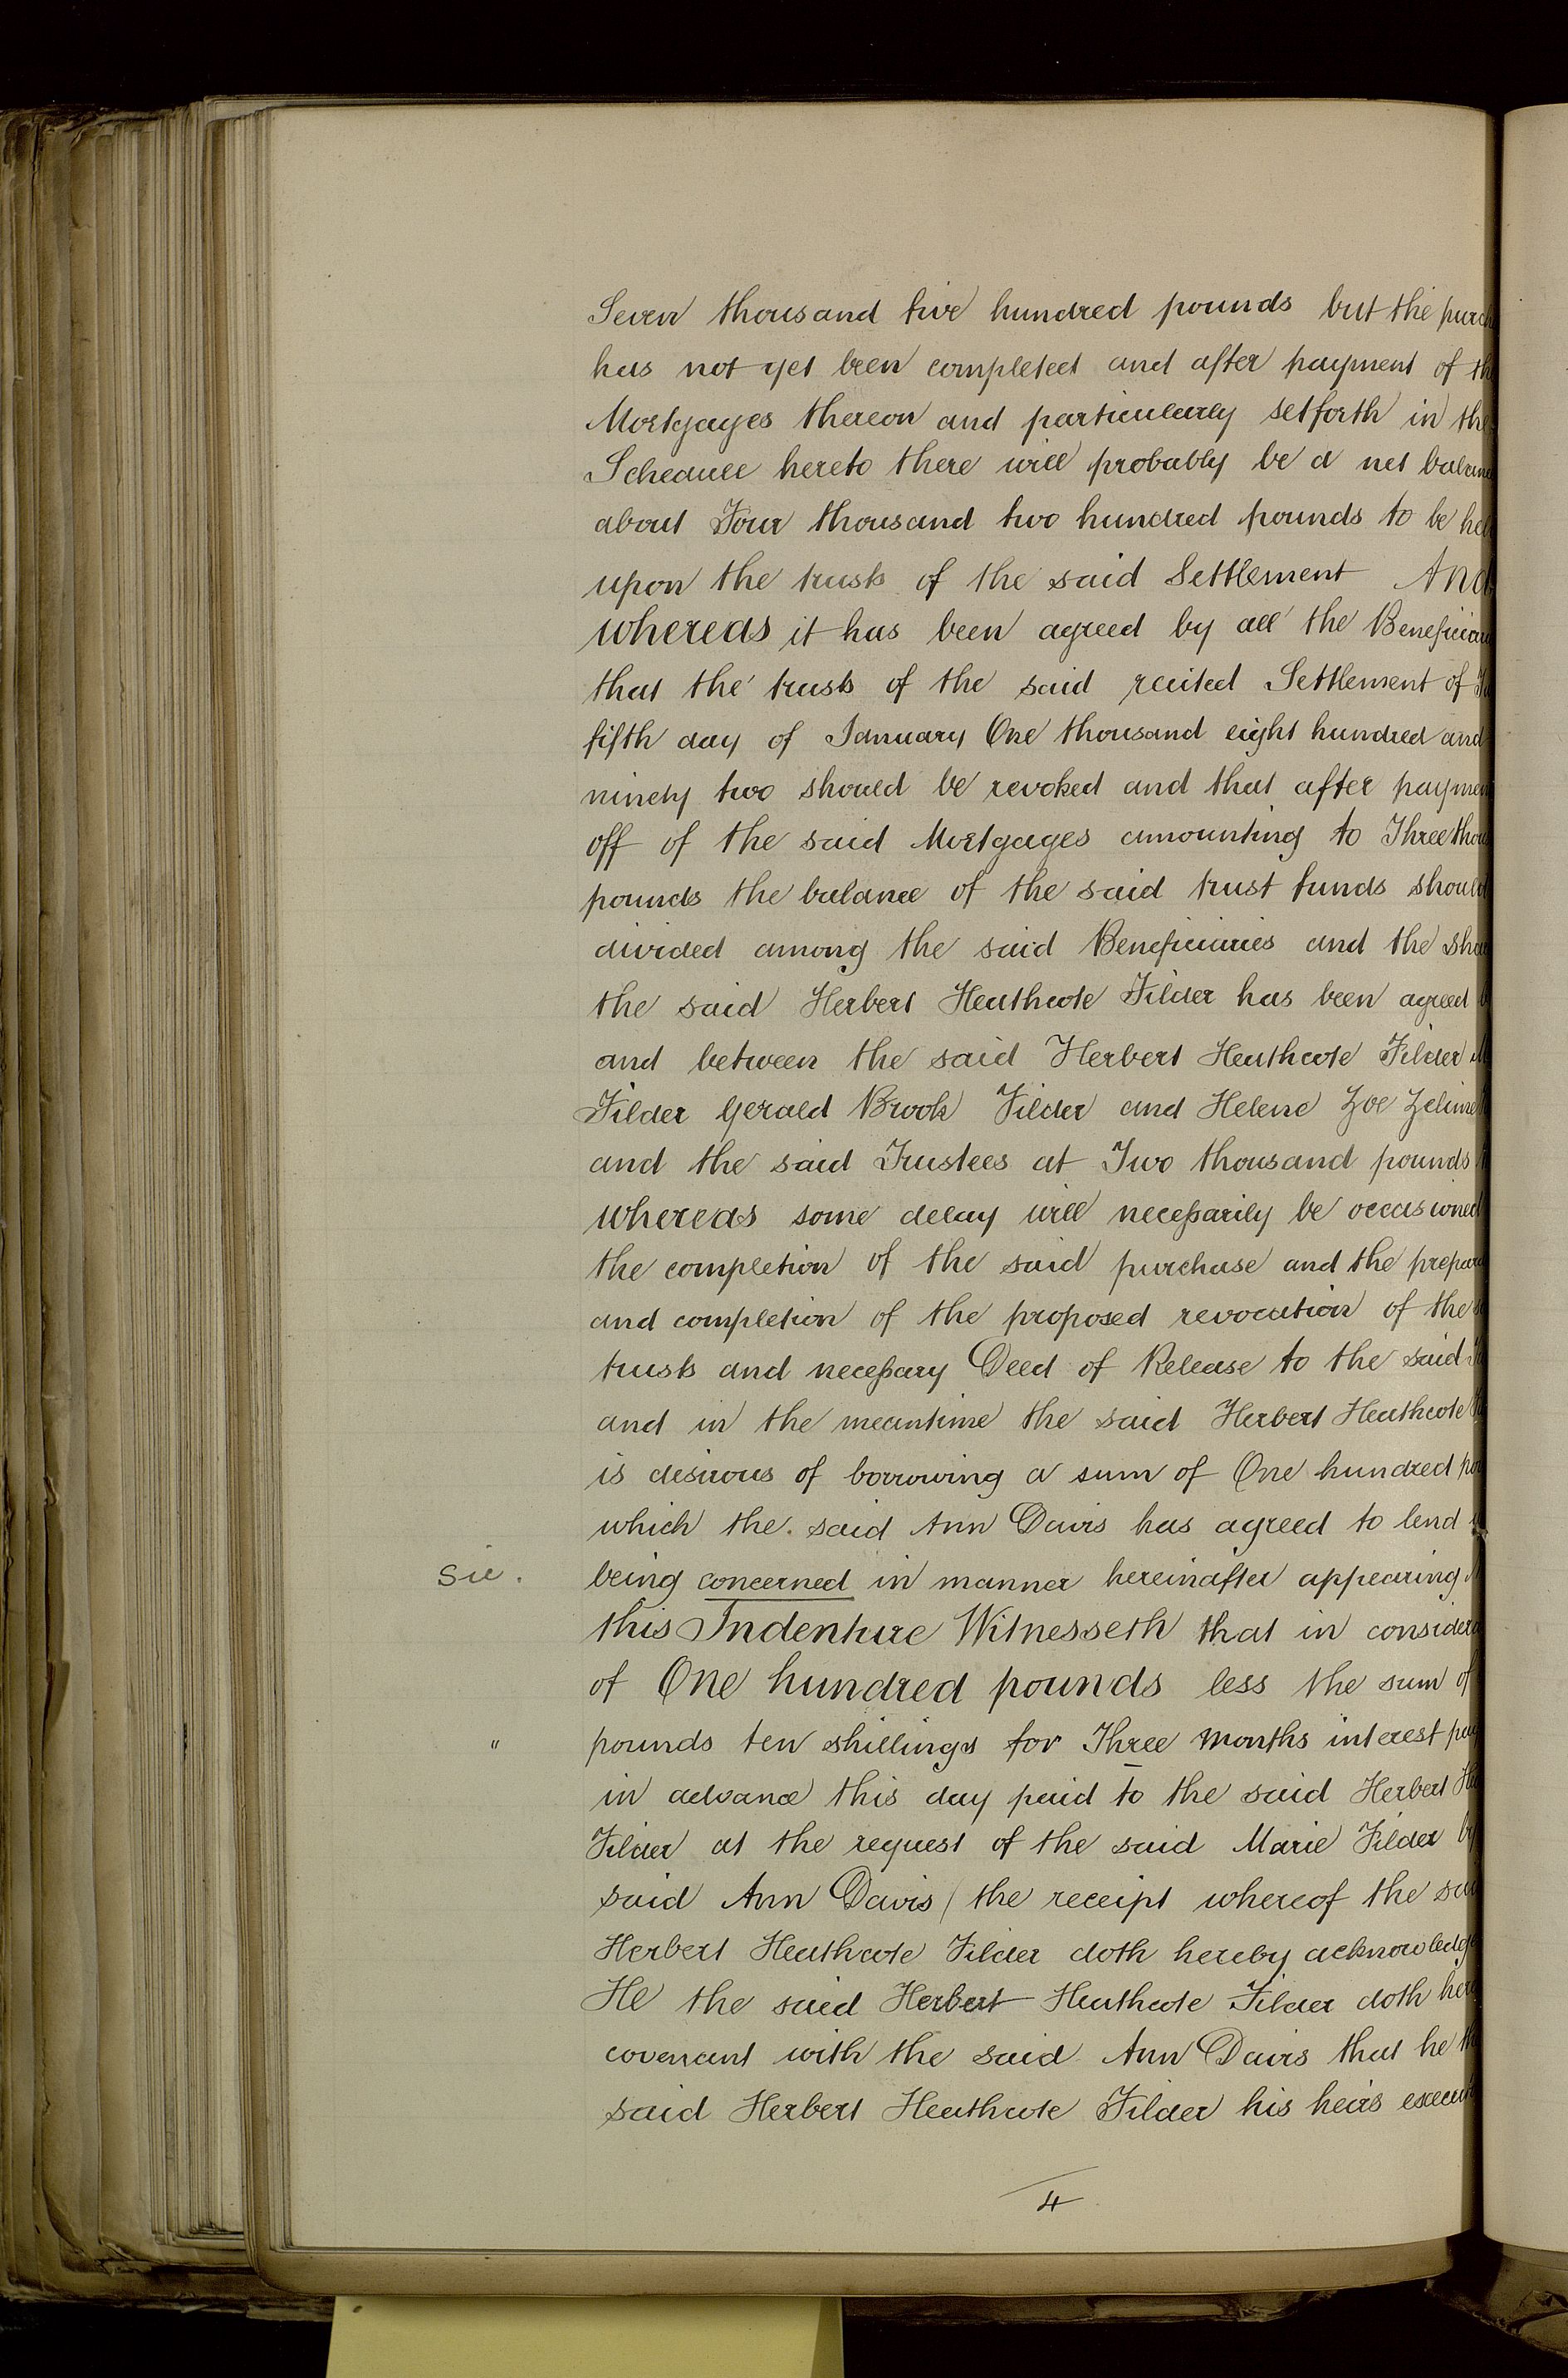 Seven thousand five hundred pounds but the purch
has not yet been completed and after payment of the
Mortgages thereon and particularly setforth in the
Schedule hereto there will probably be a net balance
about Four thousand two hundred pounds to be hel
upon the trusts of the said Settlement And
whereas it has been agreed by all the Beneficiar
that the trusts of the said recited Settlement of
fifth day of January One thousand eight hundred and
ninety two should be revoked and that after paymen
off of the said Mortgages amounting to Three thou
pounds the balance of the said trust funds should
divided among the said Beneficiaries and the sha
the said Herbert Heathcote Filder has been agreed
and between the said Herbert Heathcote Filder
Filder Gerald Brook Filder and Helene Zoe Zelime
and the said Trustees at Two thousand pounds
whereas some delay will necessarily be occasioned
the completion of the said purchase and the prepara
and completion of the proposed revocation of the
trusts and necessary Deed of Release to the said
and in the meantime the said Herbert Heathcote
is desirous of borrowing a sum of One hundred po
which the said Ann Davis has agreed to lend
sic. being concerned in manner hereinafter appearing
this Indenture Witnesseth that in considera
of One hundred pounds less the sum of
" pounds ten shillings for Three months interest pay
in advance this day paid to the said Herbert Hea
Filder at the request of the said Marie Filder by
said Ann Davis (the receipt whereof the sai
Herbert Heathcote Filder doth hereby acknowledge
He the said Herbert Heathcote Filder doth here
covenant with the said Ann Davis that he th
said Herbert Heathcote Filder his heirs execut
4